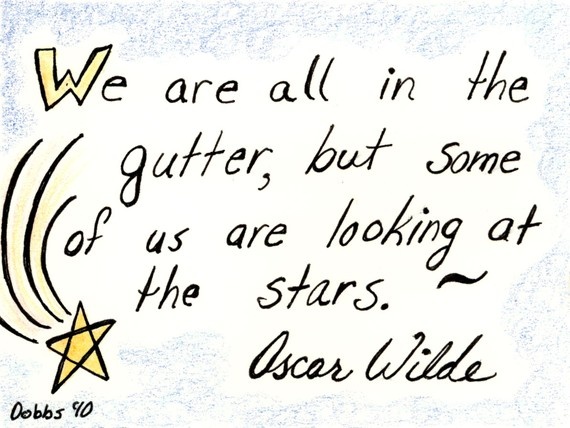 We are all in the
gutter, but some
of us are looking at
the stars. ~
Oscar Wilde
Dobbs '90